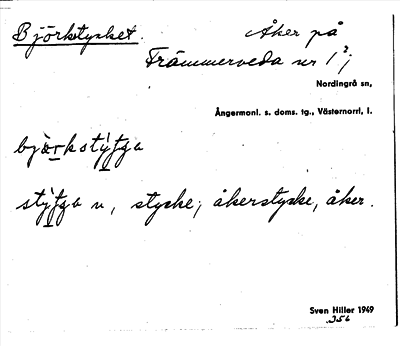 Björkstycket. Åker på
Främmerveda nr 1²;
Nordingrå sn,
Ångermanl. s. doms. tg., Västernorrl, l.
stycke; åkerstycke, åker.
Sven Hiller 1949